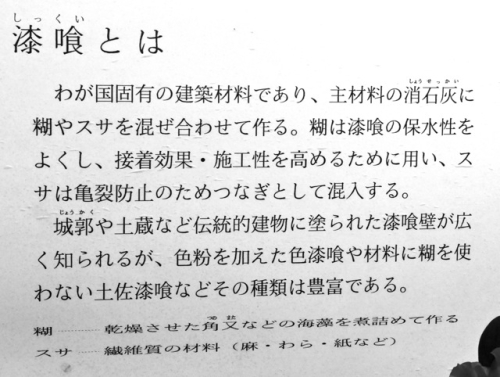 しっくい
漆喰とは
わが国固有の建築材料であり、主材料の消石灰に
しょうせっかい
糊やスサを混ぜ合わせて作る。糊は漆喰の保水性を
よくし、接着効果・施工性を高めるために用い、ス
サは亀裂防止のためつなぎとして混入する。
じょうかく
城郭や土蔵など伝統的建物に塗られた漆喰壁が広
く知られるが、色粉を加えた色漆喰や材料に糊を使
わない土佐漆喰などその種類は豊富である。
糊………乾燥させた角又などの海藻を煮詰めて作る
スサ……繊維質の材料（麻・わら・紙など）